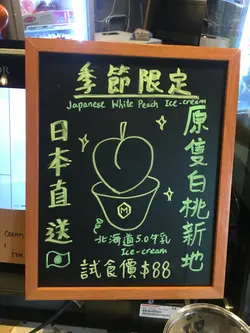 季節限定
Japanese White Peach Ice-cream
日本直送
原隻白桃新地
M
北海道5.0牛乳
Ice-cream
試食價$88